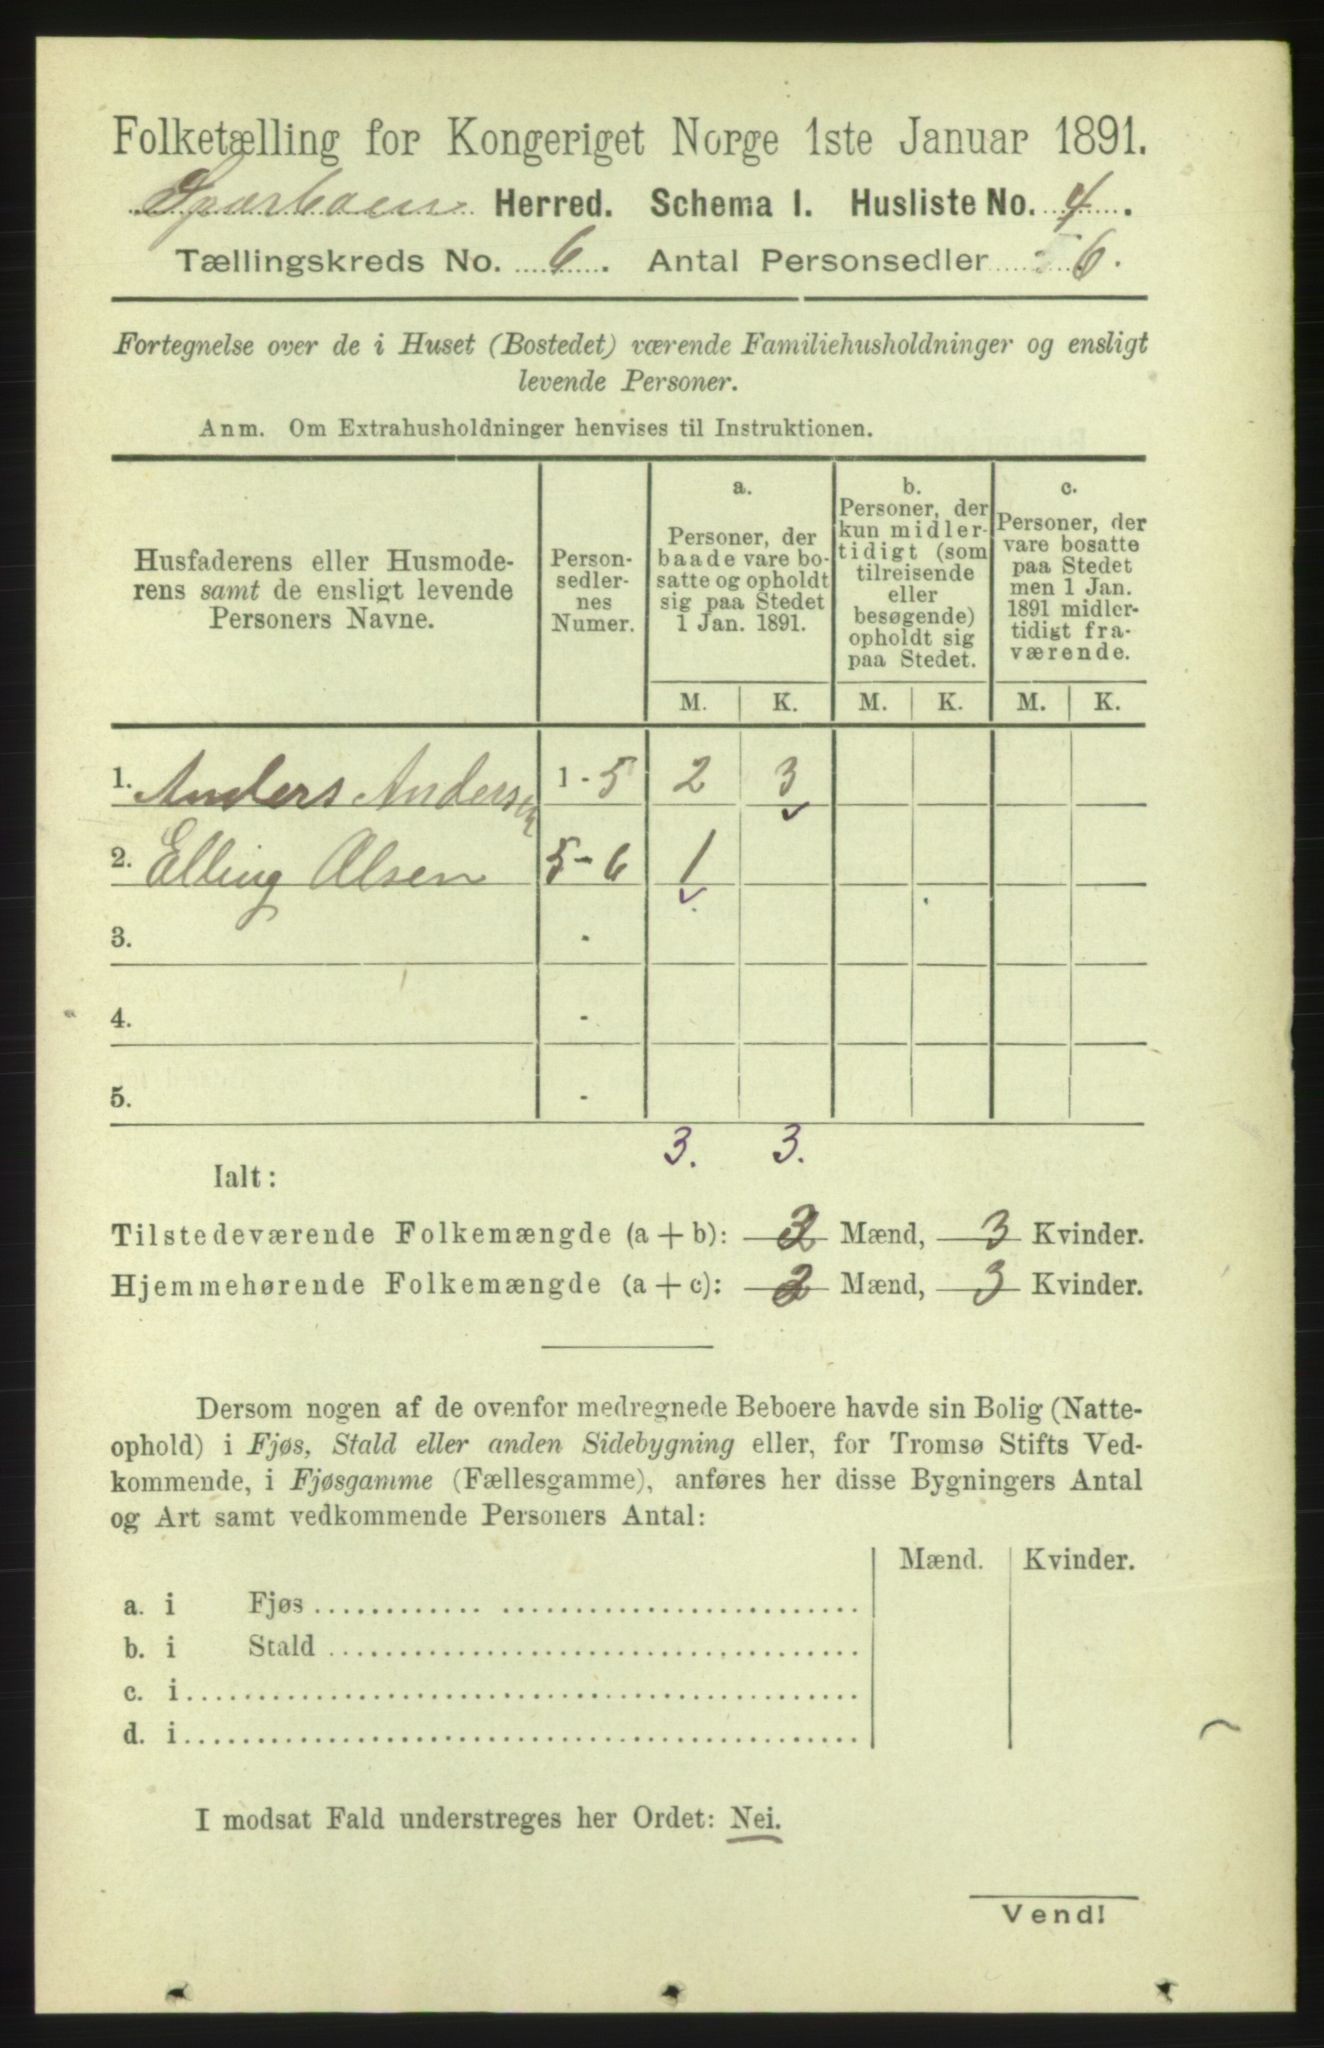 Folketælling for Kongeriget Norge 1ste Januar 1891.
Sparboen Herred. Schema I. Husliste No. 4.
Tællingskreds No. 6. Antal Personsedler 6.
Fortegnelse over de i Huset (Bostedet) værende Familiehusholdninger og ensligt
levende Personer.
Anm. Om Extrahusholdninger henvises til Instruktionen.
Husfaderens eller Husmode-
rens samt de ensligt levende
Personers Navne.
Person-
sedler-
nes
Numer.
a.
Personer, der
baade vare bo-
satte og opholdt
sig paa Stedet
1 Jan. 1891.
b.
Personer, der
kun midler-
tidigt (som
tilreisende
eller
besøgende)
opholdt sig
paa Stedet.
c.
Personer, der
vare bosatte
paa Stedet
men 1 Jan.
1891 midler-
tidigt fra-
værende.
M. K. M. K. M. K.
1. Anders Andersen 1 - 5 2 3
2. Elling Olsen 5 - 6 1
3. -
4. -
5. -
3. 3.
Ialt:
Tilstedeværende Folkemængde (a + b): 3 Mænd, 3 Kvinder.
Hjemmehørende Folkemængde (a + c): 3 Mænd, 3 Kvinder.
Dersom nogen af de ovenfor medregnede Beboere havde sin Bolig (Natte-
ophold) i Fjøs, Stald eller anden Sidebygning eller, for Tromsø Stifts Ved-
kommende, i Fjøsgamme (Fællesgamme), anføres her disse Bygningers Antal
og Art samt vedkommende Personers Antal:
Mænd. Kvinder.
a. i Fjøs
b. i Stald
c. i
d. i
I modsat Fald understreges her Ordet: Nei.
Vend!